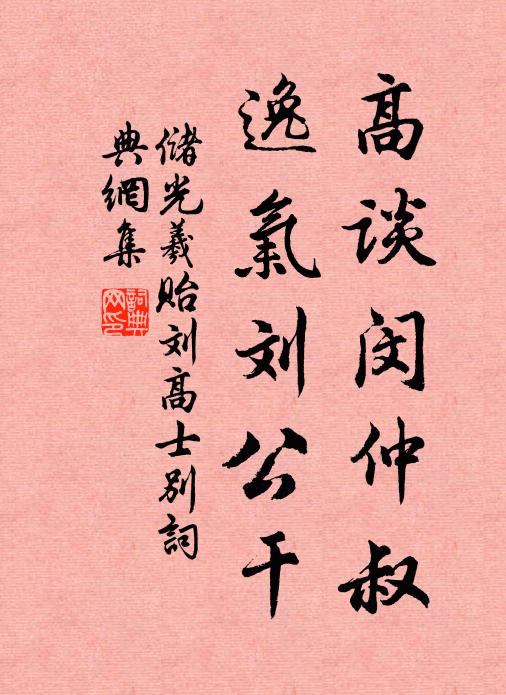 高谈闵仲叔
逸氣刘公干
儲光羲贻刘高士别詞
典網集
詞典网印